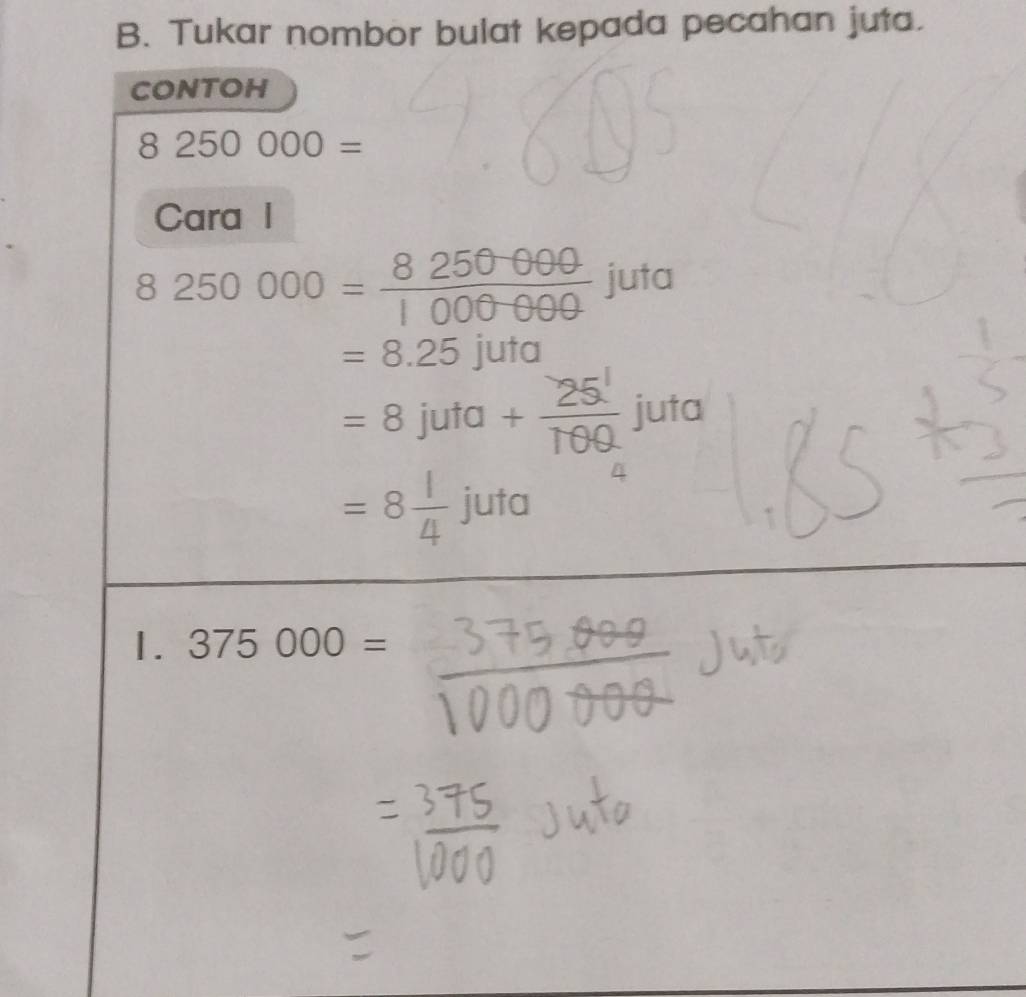 B. Tukar nombor bulat kepada pecahan juta.
CONTOH
8 250 000 =
Cara 1
8 250 000 = 8 250 000 / 1 000 000 juta
= 8.25 juta
= 8 juta + 25 1 / 100 4 juta
= 8 1/4 juta
1.85
1. 375 000 = 375 000 / 1000 000 Juta
= 375 / 1000 Juta
=